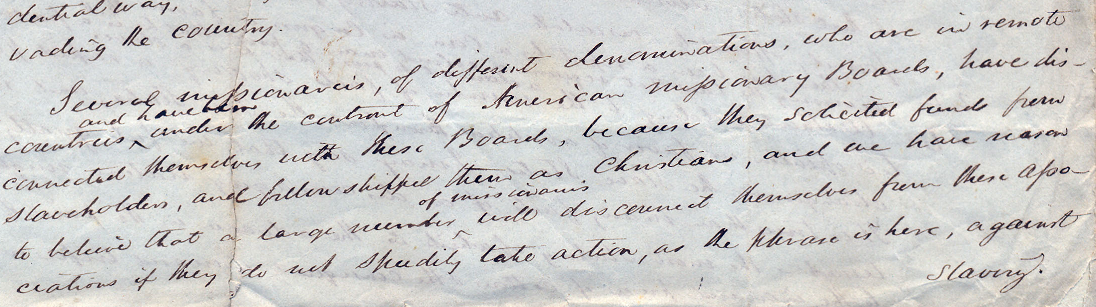 dential way,
vading the country.
Several missionaries, of different denominations, who are in remote
and have been
countries, under the control of American missionary Boards, have dis-
connected themselves with these Boards, because they solicited funds from
slaveholders, and fellowshipped them as Christians, and we have reason
of missionaries
to believe that a large number will disconnect themselves from these asso-
ciations if they do not speedily take action, as the phrase is here, against
slavery.